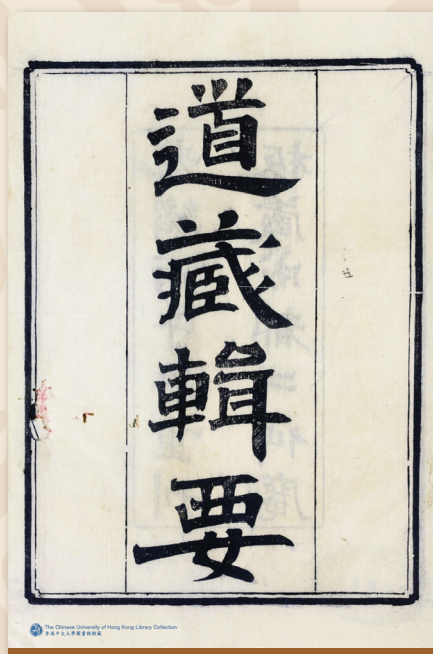 道藏輯要
The Chinese University of Hong Kong Library Collection
香港中文大學圖書館館藏